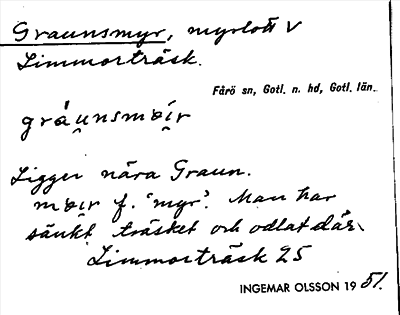 Graunsmyr, myrlott V
Limmorträsk.
Fårö sn, Gotl. n. hd, Gotl. län.
gráu̯nsmøi̯r
Ligger nära Graun.
møi̯r f. 'myr'. Man har
sänkt träsket och odlat där.
Limmorträsk 25
INGEMAR OLSSON 1951.